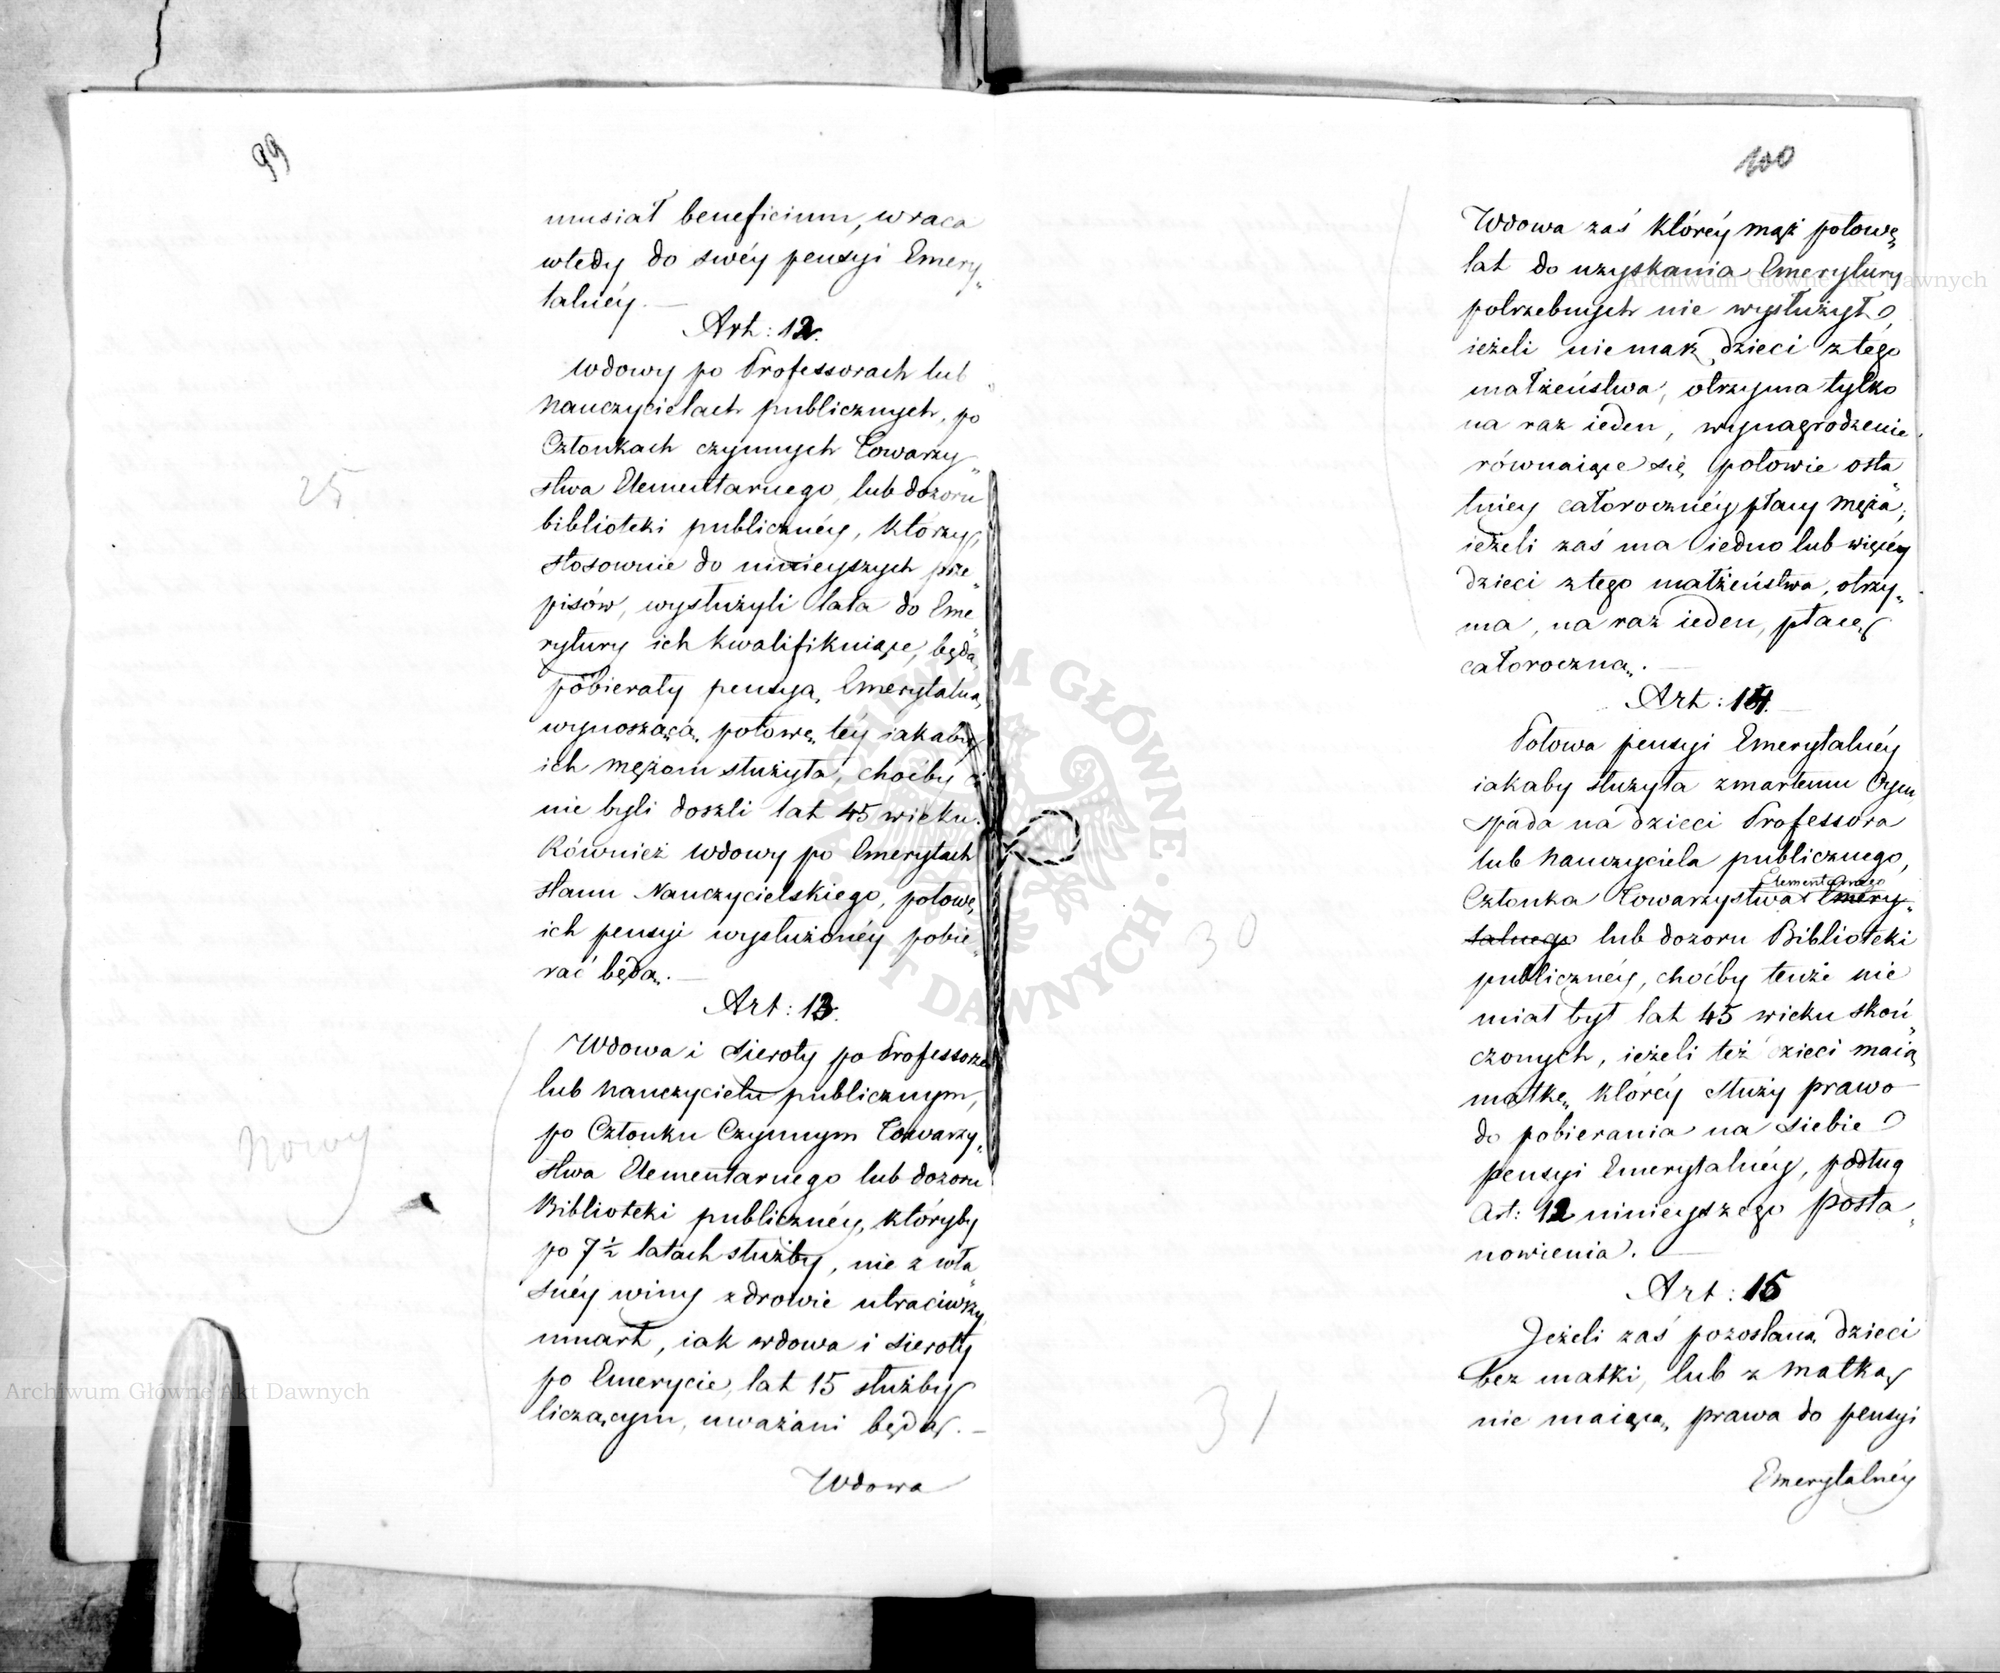 99
musiał beneficium, wraca
wtedy do swéy pensyi Emery„
talnéy. —
Art: 12.
Wdowy po Professorach lub
Nauczycielach publicznych, po
Członkach czynnych Towarzy„
stwa Elementarnego, lub dozoru
biblioteki publicznéy, którzy,
stosownie do ninieyszych prze„
pisów, wysłużyli lata do Eme„
rytury ich kwalifikuiące, będą
pobierały pensyą Emerytalną
wynoszącą połowę téy iakaby
ich mężom służyła, choćby ci
nie byli doszli lat 45 wieku.
Również wdowy po Emerytach
stanu Nauczycielskiego, połowę
ich pensyi wysłużonéy pobie„
rać będą. —
Art: 13.
Wdowa i sieroty po Professorze
lub Nauczycielu publicznym,
po Członku Czynnym Towarzy„
stwa Elementarnego lub dozoru
Biblioteki publicznéy, któryby
po 7½ latach służby, nie z wła„
snéy winy zdrowie utraciwszy
umarł, iak wdowa i sieroty
po Emerycie, lat 15 służby
liczącym, uważani będą. —
Wdowa
25
Nowy
100
Wdowa zaś któréy mąż połowę
lat do uzyskania Emerytury
potrzebnych nie wysłużył,
ieżeli niema z dzieci z tego
małżeństwa, otrzyma tylko
na raz ieden, wynagrodzenie
równaiące się połowie osta„
tniey całorocznéy płacy męża;
ieżeli zaś ma iedno lub więcéy
dzieci z tego małżeństwa, otrzy„
ma, na raz ieden, płacę
całoroczną. —
Art: 14.
Połowa pensyi Emerytalnéy
iakaby służyła zmarłemu Oycu
spada na dzieci Professora
lub Nauczyciela publicznego,
Elementarnego
Członka Towarzystwa Emery„
talnego lub dozoru Biblioteki
publicznéy, choćby tenże nie
miał był lat 45 wieku skoń„
czonych, ieżeli też dzieci maią
matkę, któréy służy prawo
do pobierania na siebie
pensyi Emerytalnéy, podług
Art: 12 ninieyszego posta„
nowienia. —
Art: 15
Jeżeli zaś pozostaną dzieci
bez matki, lub z matką
nie maiącą prawa do pensyi
Emerytalnéy
30
31
ARCHIWUM GŁÓWNE AKT DAWNYCH
Archiwum Główne Akt Dawnych
Archiwum Główne Akt Dawnych